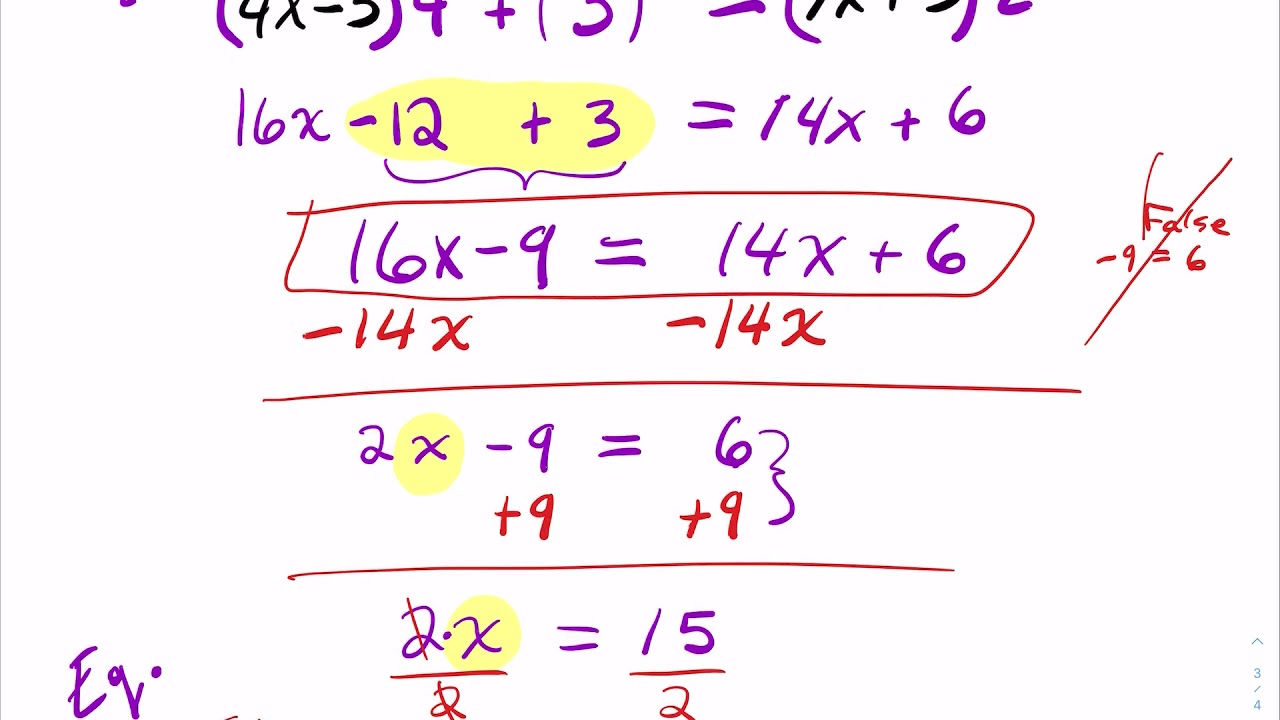 (4x-3)4 + (3) = (7x+3)2
16x -12 + 3 = 14x + 6
16x - 9 = 14x + 6
False
-9 = 6
-14x -14x
2x - 9 = 6
+9 +9
2·x = 15
2 2
Eq.
3
/
4